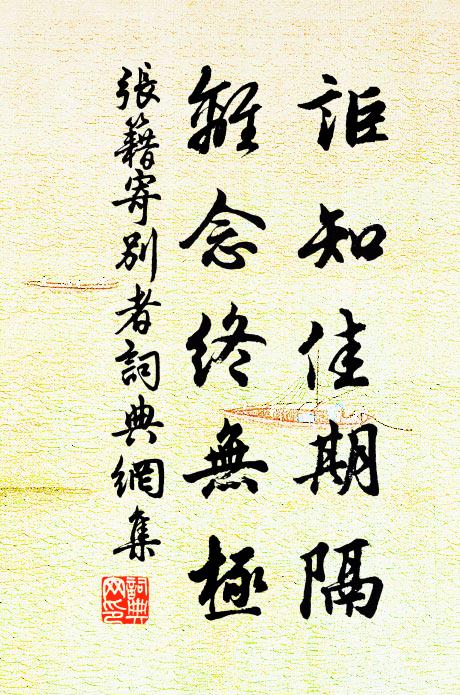 詎知佳期隔
離念終無極
張籍寄別者詞典網集
詞典
網印